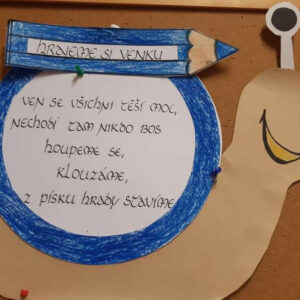 HRAJEME SI VENKU
VEN SE VŠICHNI TĚŠÍ MOC,
NECHODÍ TAM NIKDO BOS
HOUPEME SE,
KLOUZÁME,
Z PÍSKU HRADY STAVÍME